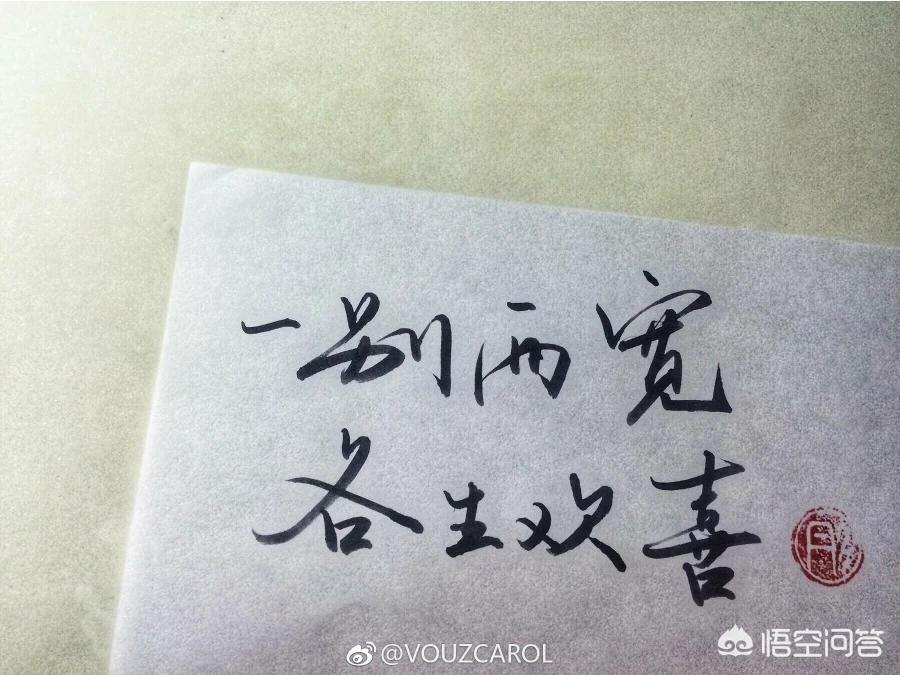 一别两宽
各生欢喜
@VOUZCAROL
悟空问答